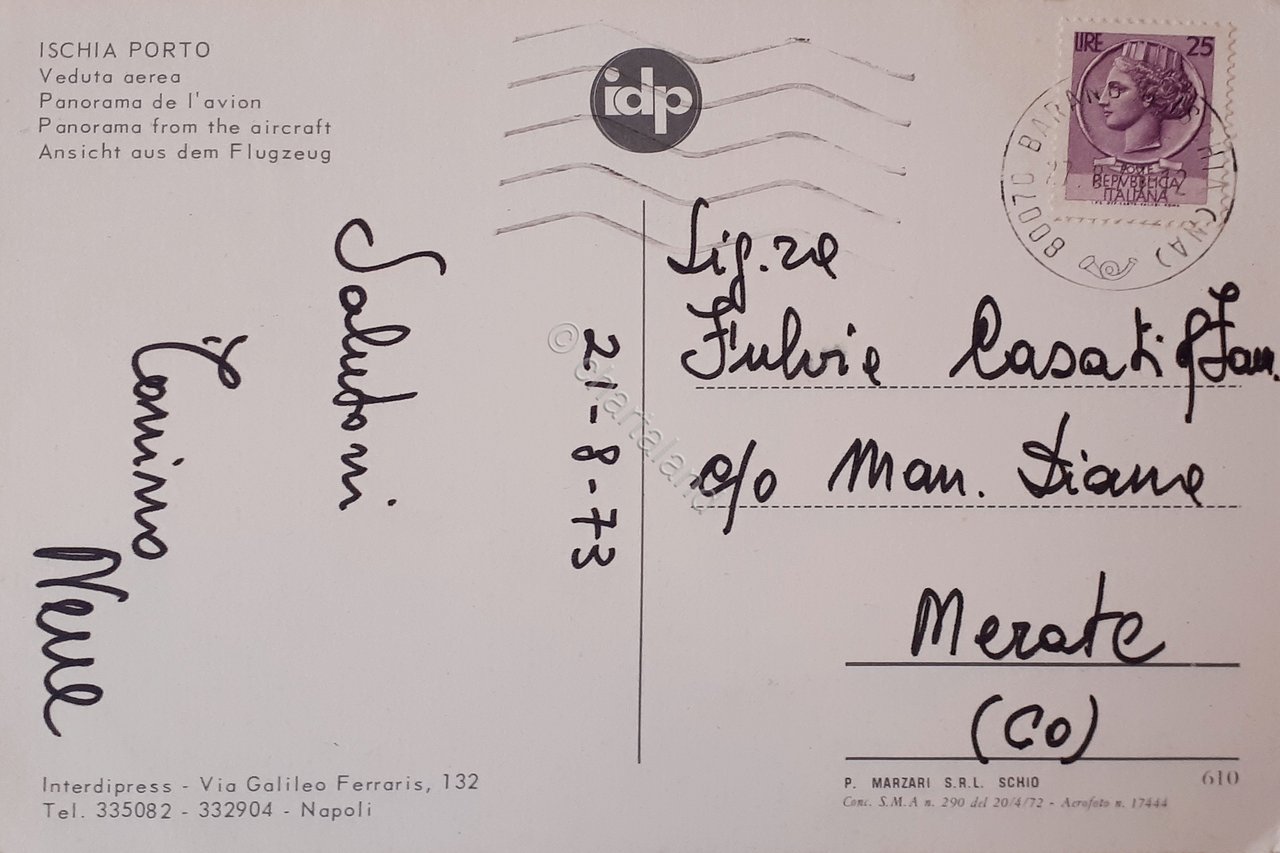 ISCHIA PORTO
Veduta aerea
Panorama de l'avion
Panorama from the aircraft
Ansicht aus dem Flugzeug
idp
LIRE 25
POSTE
REPVBBLICA
ITALIANA
80070 BARANO (NA)
Saluroni
21-8-73
Sig.ra
Fulvia Casati & Fam.
c/o Man. Diana
Merate
(Co)
Interdipress - Via Galileo Ferraris, 132
Tel. 335082 - 332904 - Napoli
P. MARZARI S.R.L. SCHIO
610
Conc. S.M.A n. 290 del 20/4/72 - Aerofoto n. 17444
© chartaland